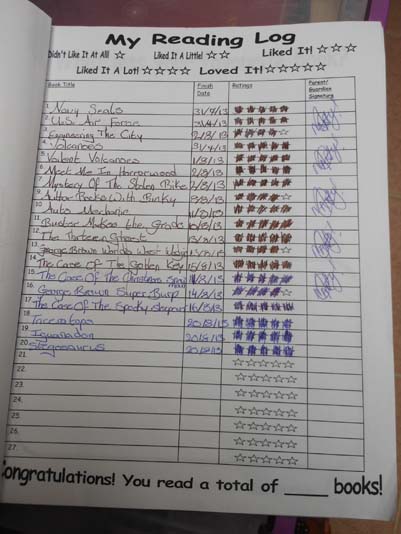 My Reading Log
Didn't Like It At All! ☆ Liked It A Little! ☆☆ Liked It! ☆☆☆
Liked It A Lot! ☆☆☆☆ Loved It! ☆☆☆☆☆
Book Title Finish Date Ratings Parent/Guardian Signature
1. Navy Seals 31/7/13
2. U.S. Air Force 31/7/13
3. Engineering The City 2/8/13
4. Volcanoes 31/7/13
5. Violent Volcanoes 1/8/13
6. Meet Me In Horrorwood 2/8/13
7. Mystery Of The Stolen Bike 2/8/13
9. Author Rocks With Binky 8/8/13
10. Auto Mechanic
11. Buster Makes the Grade
12. The Thirteen Street
13. George Brown
14. The Case Of The Golden Key 15/8/13
15. The Case Of The Christmas
16. George Brown Super Burp 14/8/13
17. The Case Of The Spooky 16/8/13
18. Triceratops 20/8/13
19. Iguanadon 20/8/13
20. Stegosaurus 20/8/13
21. ☆☆☆☆☆
22. ☆☆☆☆☆
23. ☆☆☆☆☆
24. ☆☆☆☆☆
25. ☆☆☆☆☆
26. ☆☆☆☆☆
27. ☆☆☆☆☆
Congratulations! You read a total of _____ books!